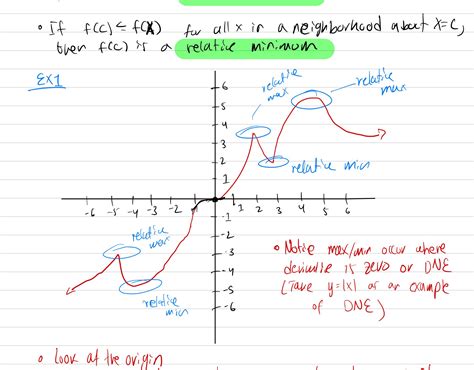 • If f(c) ≤ f(x) for all x in a neighborhood about x=c,
then f(c) is a relative minimum
EX1
relative
max
relative
max
relative min
relative
max
relative
min
6
5
4
3
2
1
-6 -5 -4 -3 -2 -1 1 2 3 4 5 6
-1
-2
-3
-4
-5
-6
• Notice max/min occur where
derivative is zero or DNE
(Take y=|x| as an example
of DNE)
• Look at the origin